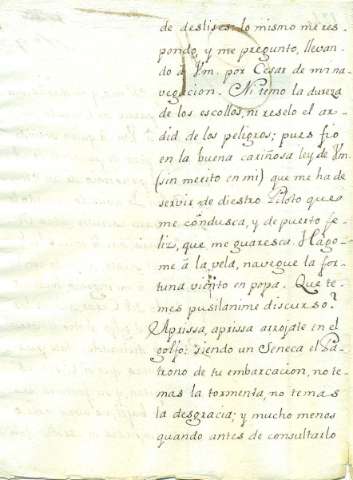 de deslises: lo mismo me res-
pondo, y me pregunto, llevan-
do â Vm. por Cesar de mi na-
vegacion. Ni temo la dureza
de los escollos, ni reselo el ar-
did de los peligros; pues fio
en la buena cariñosa ley de Vm.
(sin merito en mi) que me ha de
servir de diestro Piloto que
me condusca, y de puerto fe-
liz, que me guaresca. Hago-
me â la vela, navegue la for-
tuna viento en popa. Que te-
mes pusilanime discurso?
Aprissa, aprissa arrojate en el
golfo: siendo un Seneca el Pa-
trono de tu embarcacion, no te-
mas la tormenta, no temas
la desgracia; y mucho menos
quando antes de consultarlo